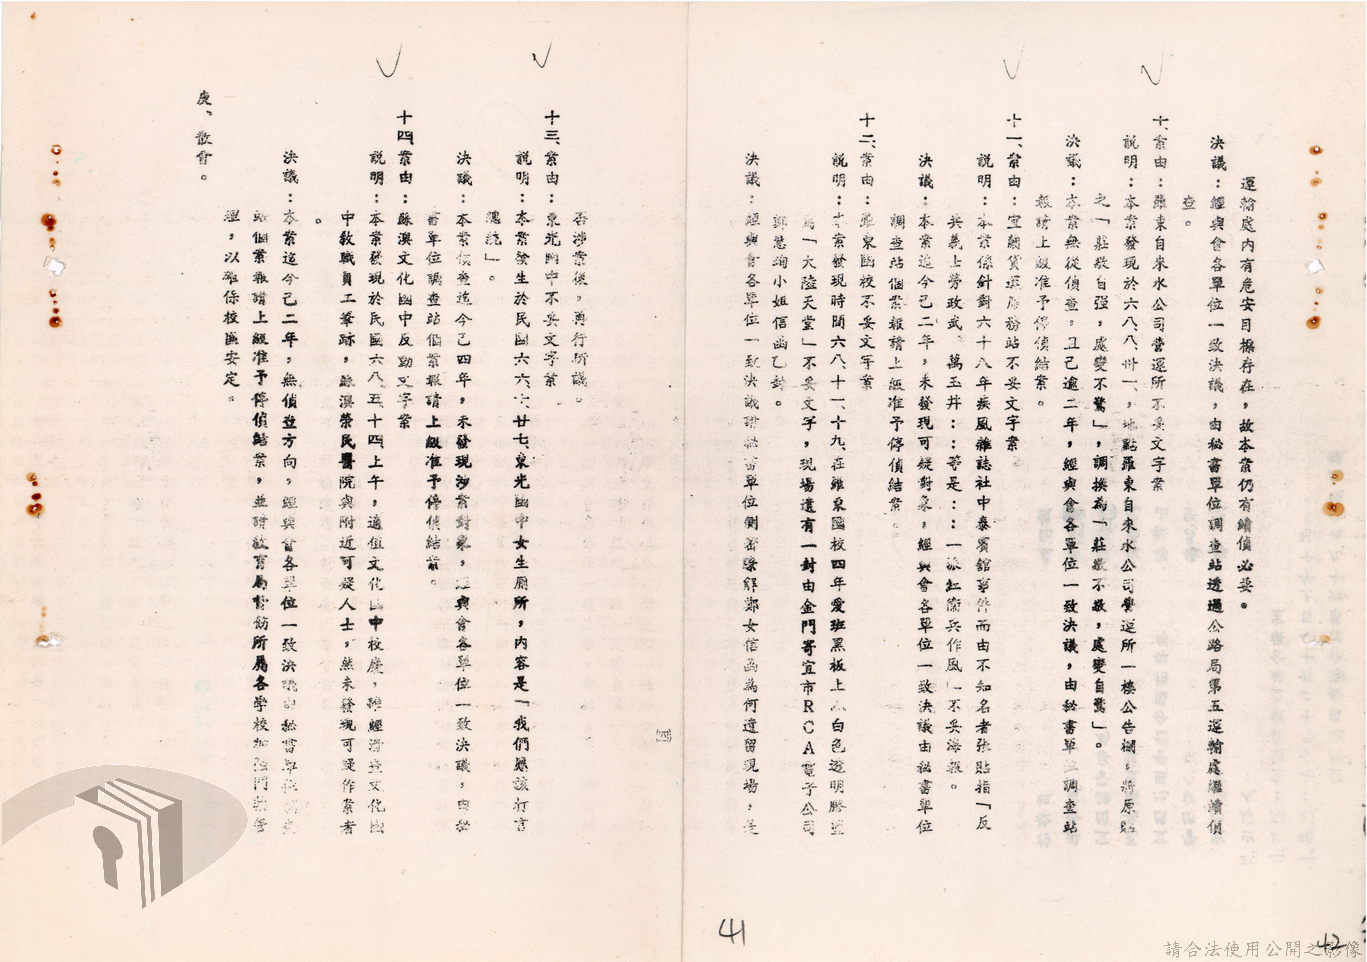 運輸處內有危安目標存在，故本案仍有續偵必要。
決議：經與會各單位一致決議，由秘書單位調查站透過公路局第五運輸處繼續偵
查。
十、案由：羅東自來水公司營運所不妥文字案
說明：本案發現於六八、八、卅一、地點羅東自來水公司營運所一樓公告欄，將原貼
之「莊敬自強，處變不驚」，調換為「莊敬不敬，處變自驚」。
決議：本案無從偵查，且已逾二年，經與會各單位一致決議，由秘書單位調查站
報請上級准予停偵結案。
十一、案由：宜蘭貨運服務站不妥文字案
說明：本案係針對六十八年疾風雜誌社中泰賓館事件而由不知名者張貼指「反
共義士勞政武、萬玉井：：等是：：一派紅衛兵作風」不妥海報。
決議：本案迄今已二年，未發現可疑對象，經與會各單位一致決議由秘書單位
調查站個案報請上級准予停偵結案。
十二、案由：羅東國校不妥文字案
說明：本案發現時間六八、十一、十九、在羅東國校四年愛班黑板上以白色透明膠
寫「大陸天堂」不妥文字，現場遺有一封由金門寄宜市RCA電子公司
鄭慧珣小姐信函乙封。
決議：經與會各單位一致決議請秘書單位側密瞭解鄭女信函為何遺留現場，是
否涉案後，再行所議。
十三、案由：東光國中不妥文字案
說明：本案發生於民國六六、六、廿七、東光國中女生廁所，內容是「我們應該打言
總統」。
決議：本案偵查迄今已四年，未發現涉案對象，經與會各單位一致決議，由秘
書單位調查站個案報請上級准予停偵結案。
十四、案由：蘇澳文化國中反動文字案
說明：本案發現於民國六八、五、十四、上午，適值文化國中校慶，雖經清查文化國
中教職員工筆跡，蘇澳榮民醫院與附近可疑人士，然未發現可疑作案者
。
決議：本案迄今已二年，無偵查方向，經與會各單位一致決議由秘書單位調查
站個案報請上級准予停偵結案，並請教育局轉飭所屬各學校加強門禁管
理，以確保校區安定。
庚、散會。
41
42
請合法使用公開之影像